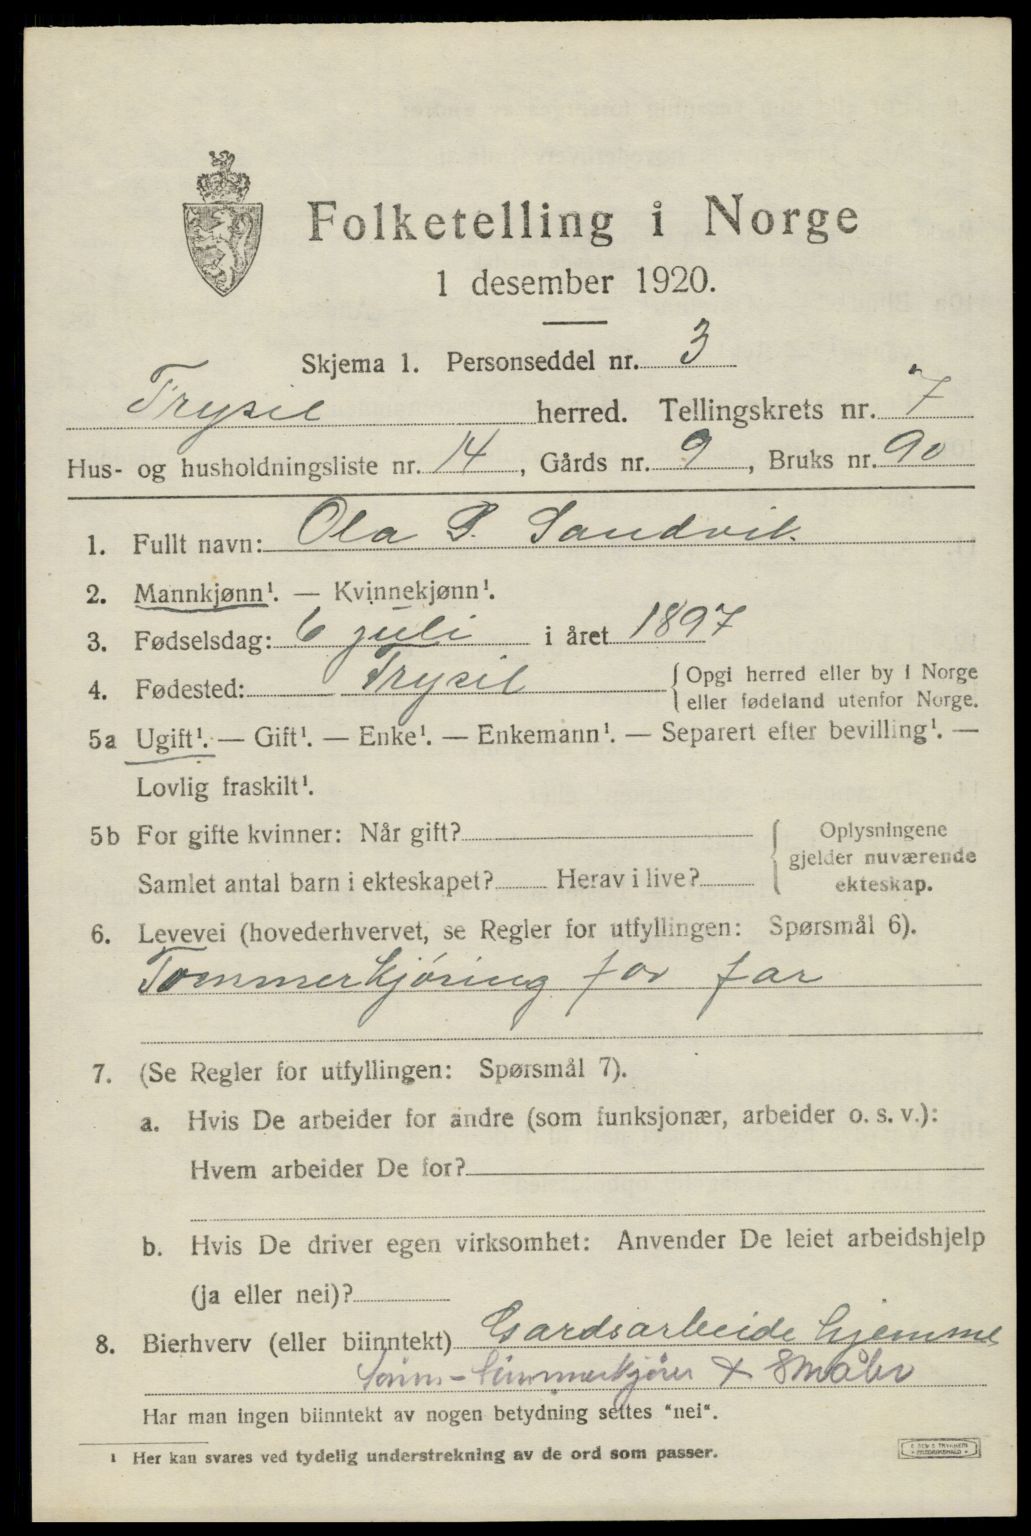 Folketelling i Norge
1 desember 1920.
Skjema 1. Personseddel nr. 3
Trysil herred. Tellingskrets nr. 7
Hus- og husholdningsliste nr. 14, Gårds nr. 9, Bruks nr. 90
1. Fullt navn: Ola P. Sandvik.
2. Mannkjønn¹. — Kvinnekjønn¹.
3. Fødselsdag: 6 juli i året 1897
4. Fødested: Trysil { Opgi herred eller by i Norge
eller fødeland utenfor Norge.
5a Ugift¹. — Gift¹. — Enke¹. — Enkemann¹. — Separert efter bevilling¹. —
Lovlig fraskilt¹.
5b For gifte kvinner: Når gift?
Samlet antal barn i ekteskapet? Herav i live?
{ Oplysningene
gjelder nuværende
ekteskap.
6. Levevei (hovederhvervet, se Regler for utfyllingen: Spørsmål 6).
Tommerkjöring for far
7. (Se Regler for utfyllingen: Spørsmål 7).
a. Hvis De arbeider for andre (som funksjonær, arbeider o. s. v.):
Hvem arbeider De for?
b. Hvis De driver egen virksomhet: Anvender De leiet arbeidshjelp
(ja eller nei)?
8. Bierhverv (eller biinntekt) Gardsarbeide hjemme
Sönn - tömmerkjörer + småbr
Har man ingen biinntekt av nogen betydning settes "nei".
¹ Her kan svares ved tydelig understrekning av de ord som passer.